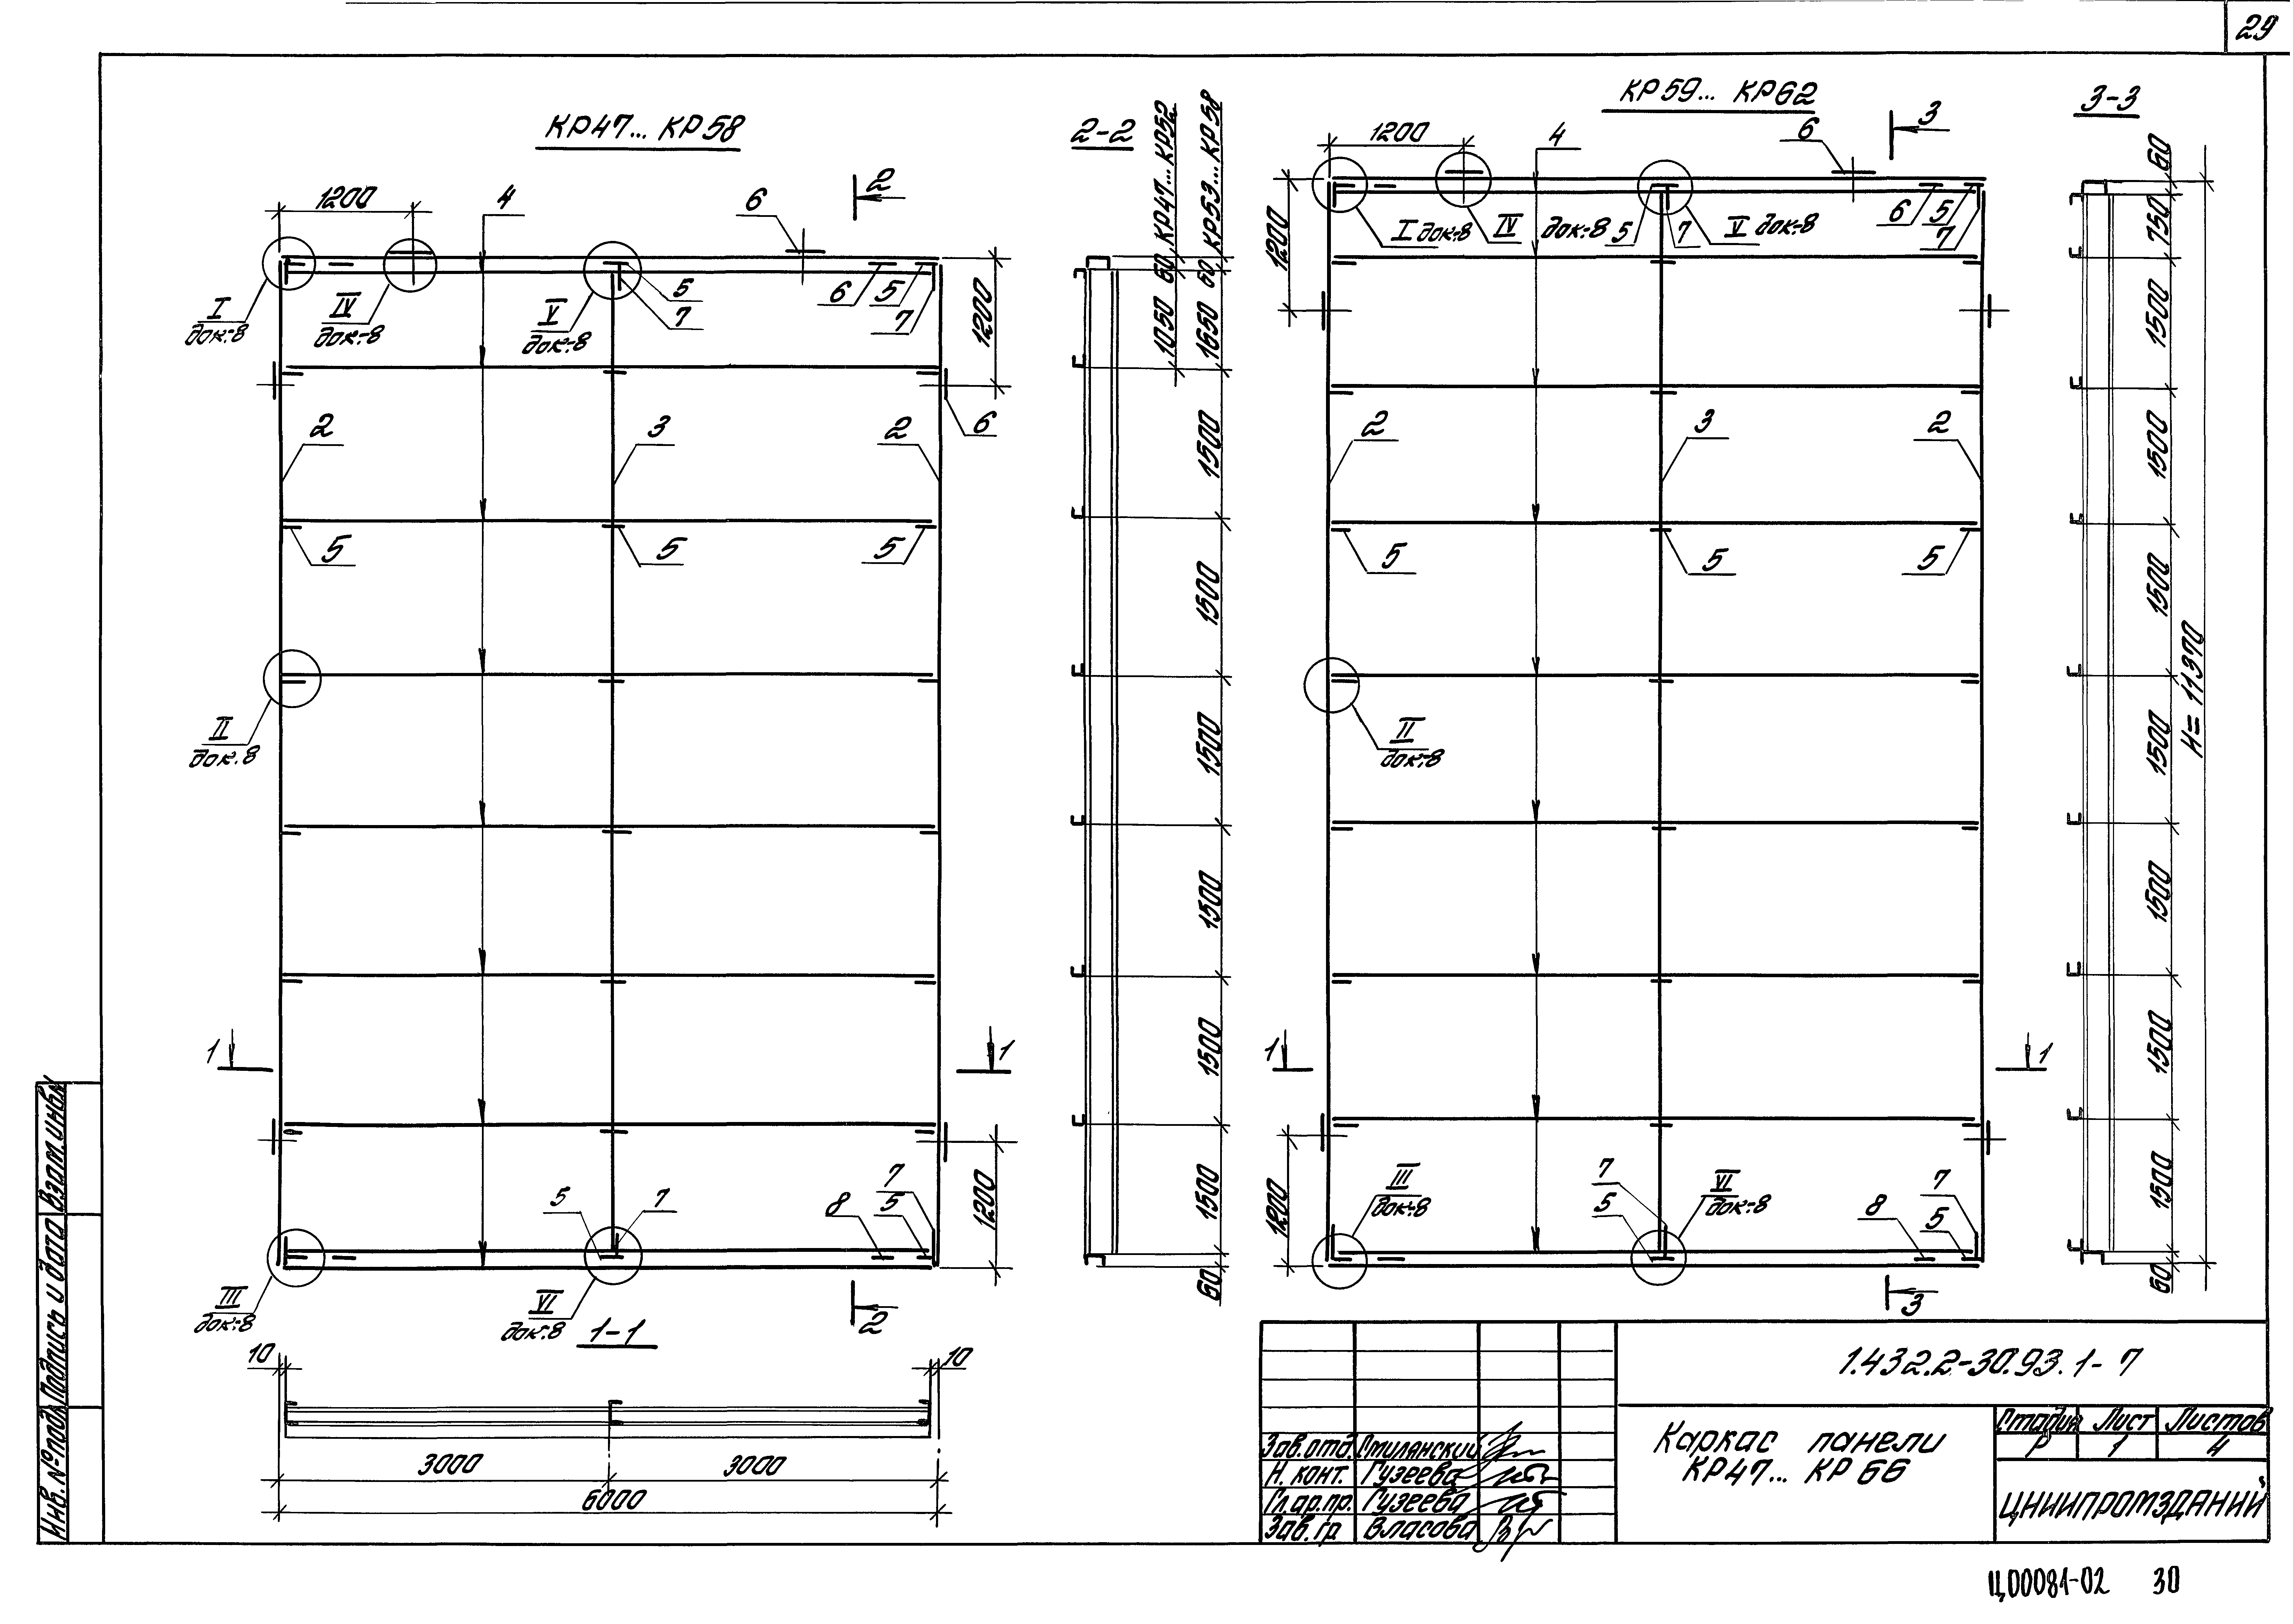 29
КР47... КР58
2-2
КР47... КР52
КР53... КР58
КР59... КР62
3-3
1200
4
6
2
60
60
1050
1650
1500
1500
1500
1500
1500
1500
I
док.-8
IV
док.-8
V
док.-8
5
7
6
5
7
1200
6
2
3
2
5
5
5
II
док.8
1
1
5
7
8
7
5
1200
60
III
док.-8
VI
док.-8
2
1-1
10
10
3000
3000
6000
1200
4
6
3
1200
I док.-8
IV
док.-8
5
7
V док.-8
6
5
7
2
3
2
5
5
5
II
док.-8
1
1
III
док.-8
7
5
VI
док.-8
8
7
5
1200
3
60
750
1500
1500
1500
1500
1500
1500
1500
60
H=11370
1.432.2-30.93.1-7
Каркас панели
КР47... КР66
Стадия Лист Листов
Р 1 4
ЦНИИПРОМЗДАНИЙ
Зав.отд. Смилянский
Н. конт. Гузеева
Гл.ар.пр. Гузеева
Зав.гр Власова
Взам.инв.№
Подпись и дата
Инв.№подл.
Ц00081-02 30